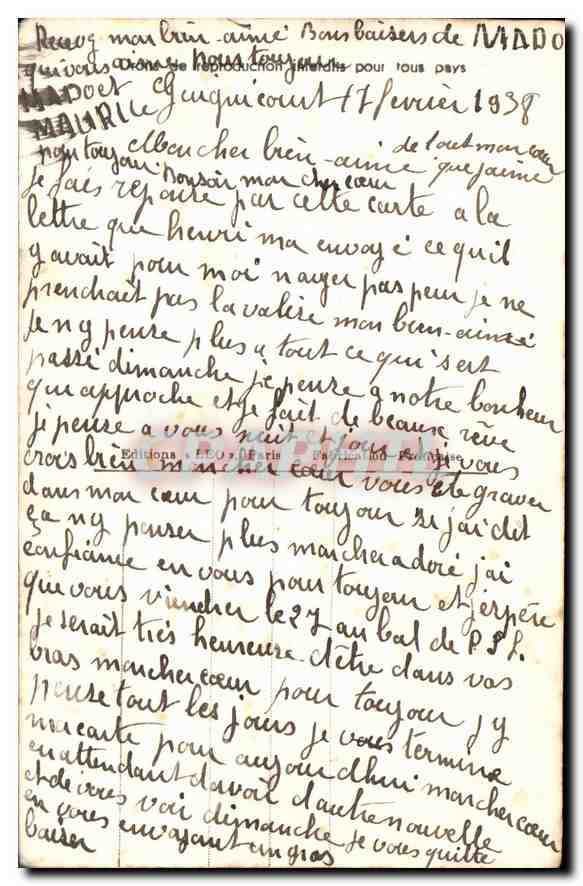 Recevez mon bien-aimé Bons baisers de MADO
qui vous aime pour toujours
Droits de reproduction interdits pour tous pays
MADO et
MAURICE Guignicourt 17 fevrier 1938
de tout mon cœur
Mon cher bien-aimé que j'aime
pour toujour Bonsoir mon cher cœur
je fais reponse par cette carte a la
lettre que henri ma envoyé ce quil
y avait pour moi n'ayer pas peur je ne
prenchait pas la valise mon bien-aimé
Je n y pense plus a tout ce qui sest
passé dimanche je pense a notre bonheur
qui approche et je fait de beaux rêve
je pense a vous nuit et jour si vous
Editions « LEO » Paris Fabrication Française
crois bien mon cher cœur vous ete graver
dans mon cœur pour toujour si j'ai dit
ça n y penser plus mon cher adoré j'ai
confiance en vous pour toujour et j'espère
que vous viencher le 27 au bal de P.S.F.
je serait très heureuse d'être dans vos
bras mon cher cœur pour toujour j y
pense tout les jours je vous termine
ma carte pour aujourd'hui mon cher cœur
en attendant davoir d'autre nouvelle
et de vous voir dimanche je vous quitte
en vous envoyant un gros
baiser